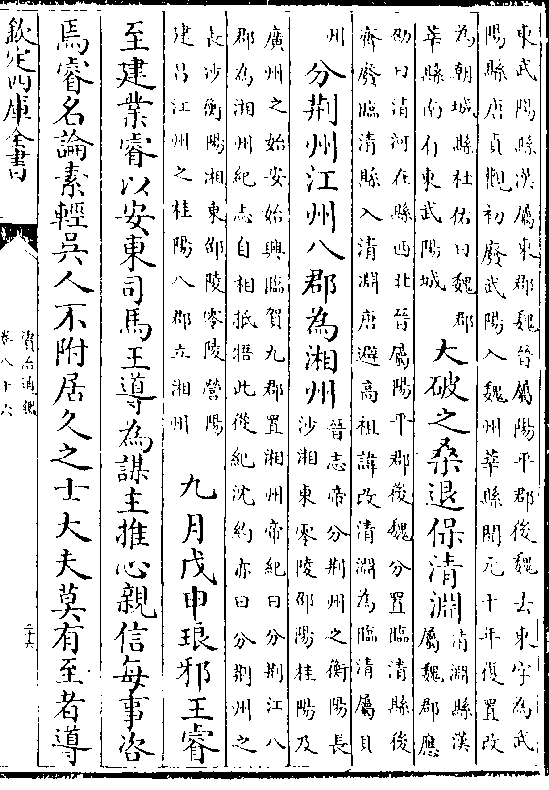 東武陽縣漢屬東郡魏晉屬陽平郡後魏去東字為武
陽縣唐貞觀初廢武陽入魏州莘縣開元十年復置改
為朝城縣杜佑曰魏郡
莘縣南有東武陽城
大破之桑退保清淵
清淵縣漢
屬魏郡應
劭曰清河在縣西北晉屬陽平郡後魏分置臨清縣後
齊廢臨清縣入清淵唐避高祖諱改清淵為臨清屬貝
州
分荆州江州八郡為湘州
晉志帝分荆州之衡陽長
沙湘東零陵邵陽桂陽及
廣州之始安始興臨賀九郡置湘州帝紀曰分荆江八
郡為湘州紀志自相抵牾此從紀沈約亦曰分荆州之
長沙衡陽湘東邵陵零陵營陽
建昌江州之桂陽八郡立湘州
九月戊申琅邪王睿
至建業睿以安東司馬王導為謀主推心親信每事咨
焉睿名論素輕吳人不附居久之士大夫莫有至者導
欽定四庫全書
資治通鑑
卷八十六
三六